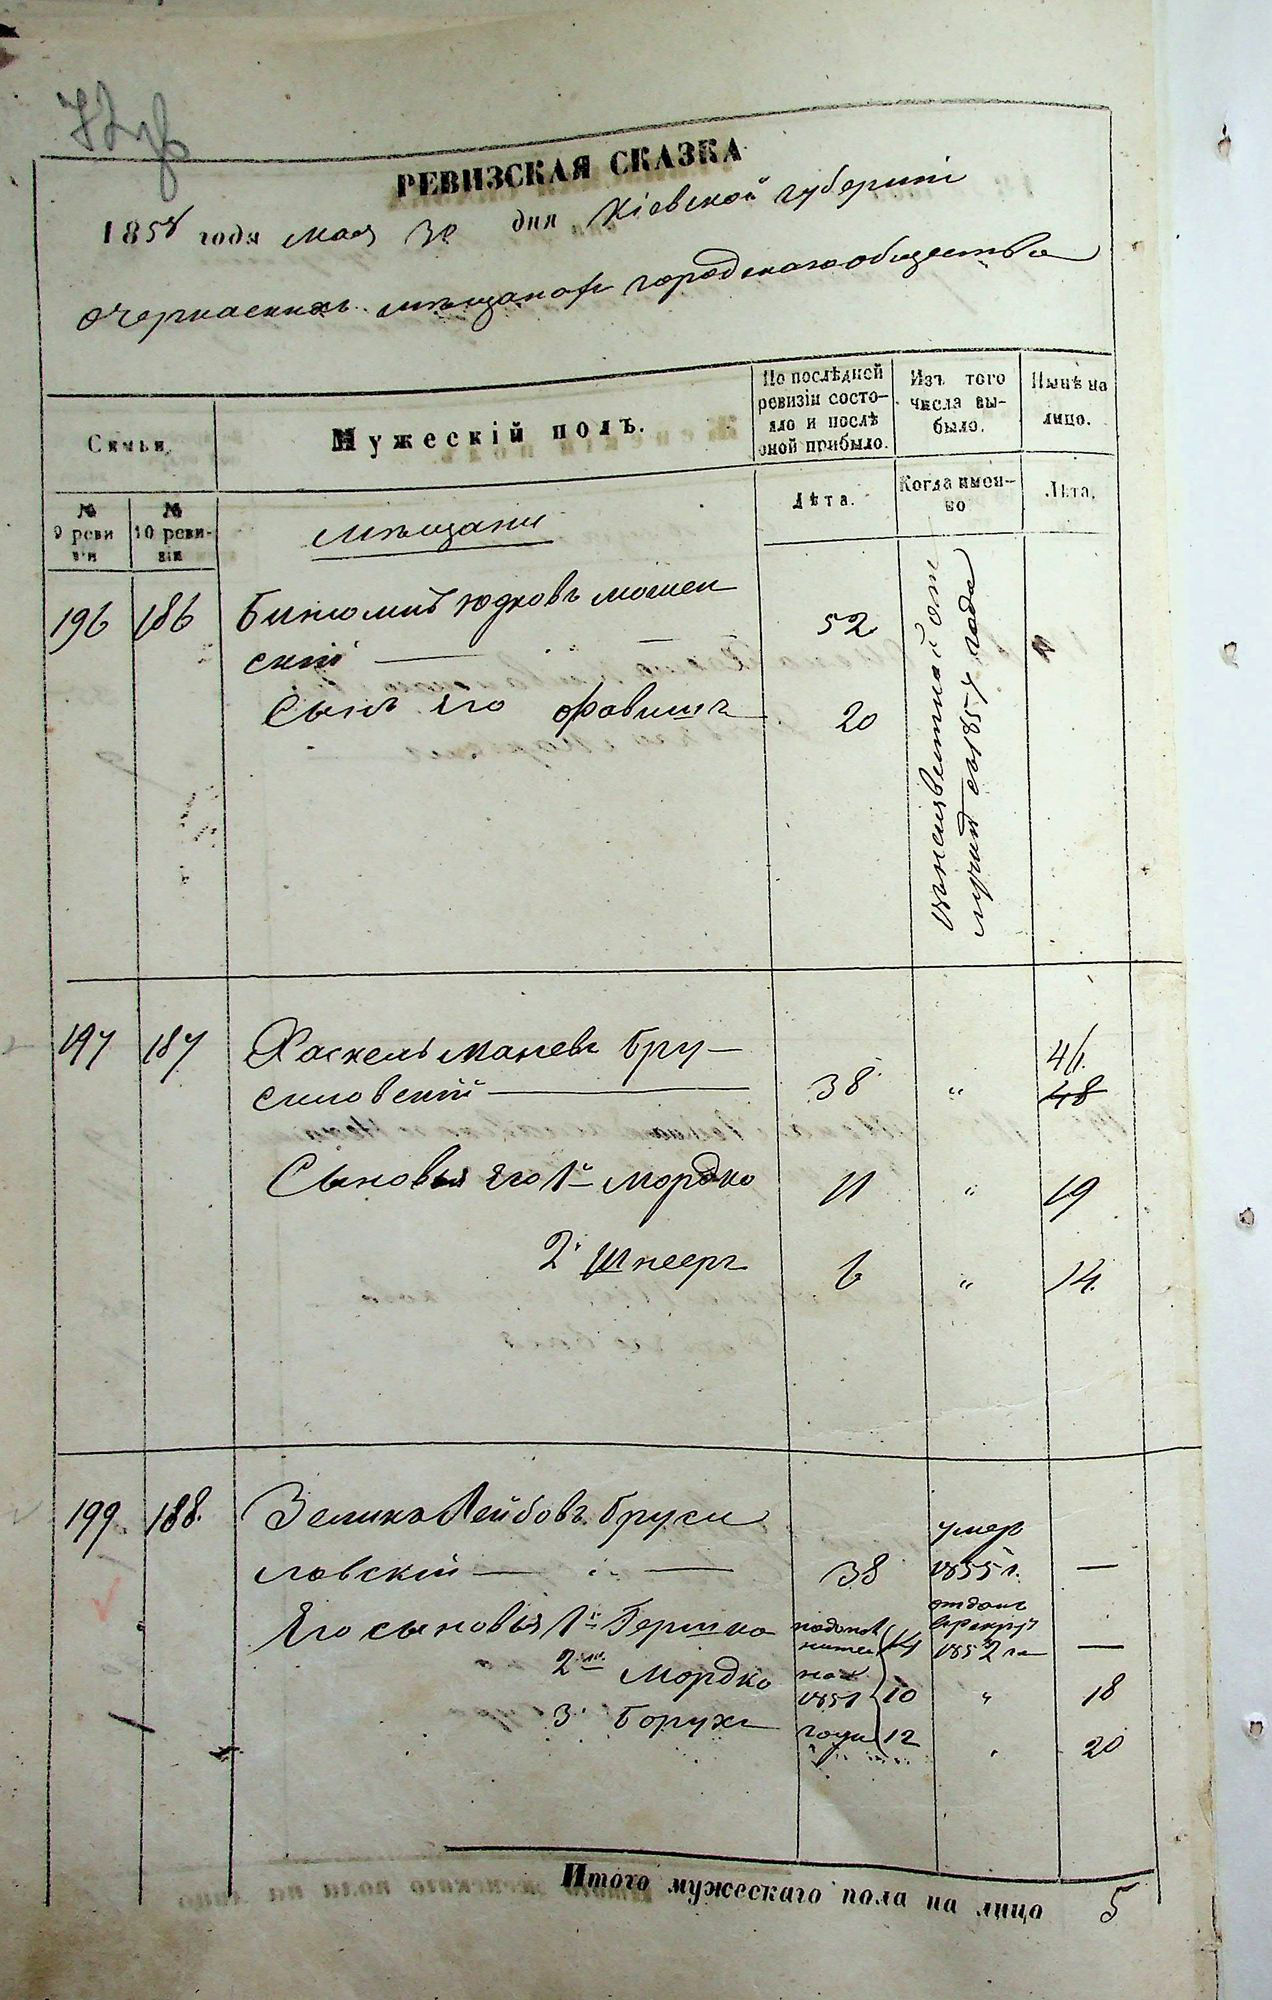 РЕВИЗСКАЯ СКАЗКА
1858 года мая 30 дня Кіевской губерніи
о черкаскихъ мѣщанахъ городскаго общества
Семьи,
Мужескій полъ.
По послѣдней ревизіи состояло и послѣ оной прибыло.
Изъ того числа выбыло.
Нынѣ на лицо.
№ 9 ревизіи
№ 10 ревизіи
Лѣта.
Когда именно
Лѣта.
мѣщани
196 186 Биніоминъ Юдковъ Мошен
скій 52
Сынъ его Файвишъ 20
въ неизвѣстной от
лучкѣ съ 1857 года
197 187 Хаскель Маневъ Бру-
силовскій 38 „ 46.
48
Сыновья его 1й Мордко 11 „ 19
2й Шнееръ 6 „ 14.
199 188. Зеликъ Лейбовъ Бруси умеръ
ловскій 38 1855 г. —
Его сыновья 1й Гершко 14 отданъ
в рекруты
1852 го —
2й Мордко 10 „ 18
3й Борухъ 12 „ 20
1851 года
Итого мужескаго пола на лицо 5